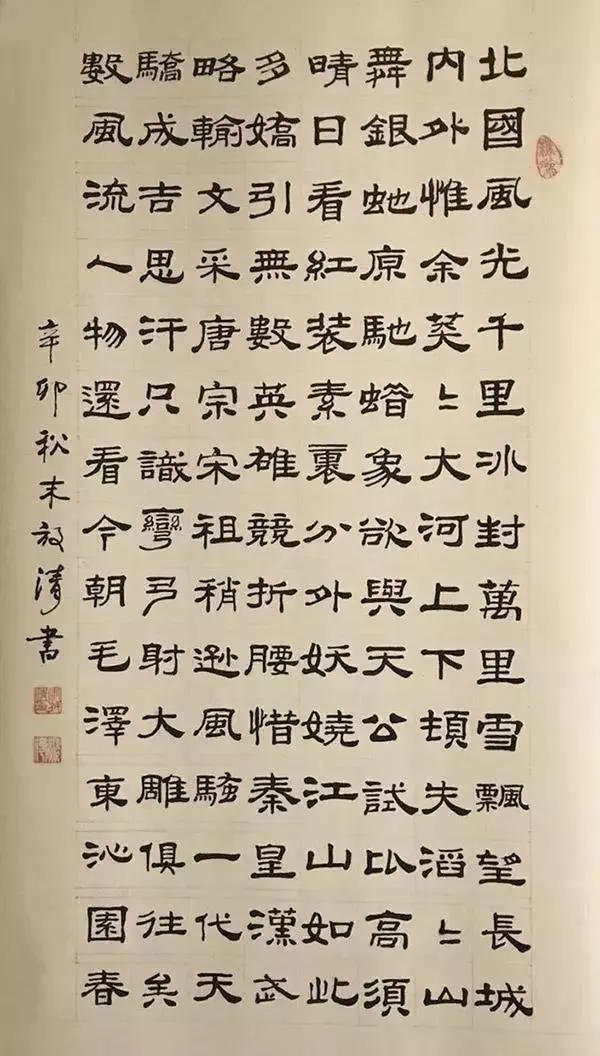 北國風光千里冰封萬里雪飄望長城
内外惟余莫〻大河上下頓失滔〻山
舞銀虵原馳蜡象欲與天公試比高須
晴日看紅装素裹分外妖嬈江山如此
多嬌引無數英雄競折腰惜秦皇漢武
略輸文采唐宗宋祖稍遜風騷一代天
驕成吉思汗只識彎弓射大雕俱往矣
數風流人物還看今朝毛澤東沁園春
辛卯秋末放清書